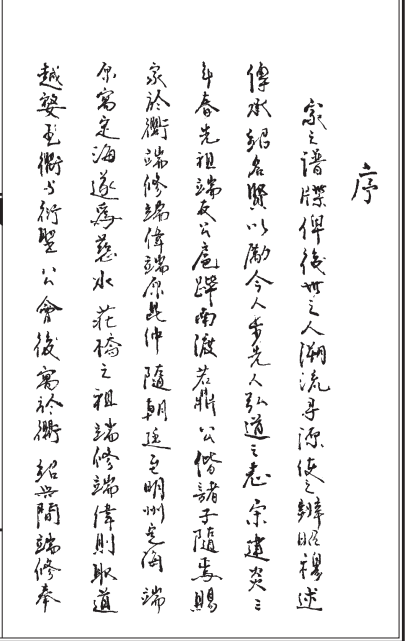 序
家之譜牒俾後世之人溯流尋源使之辨昭穆述
傳承紹名賢以勵今人步先人弘道之志宋建炎三
年春先祖端友公扈蹕南渡若鼎公偕諸子隨焉賜
家於衢端修端偉端原昆仲隨朝廷至明州定海端
原寓定海遂為慈水莊橋之祖端修端偉則取道
越婺至衢与衍聖公會後寓於衢紹興間端修奉